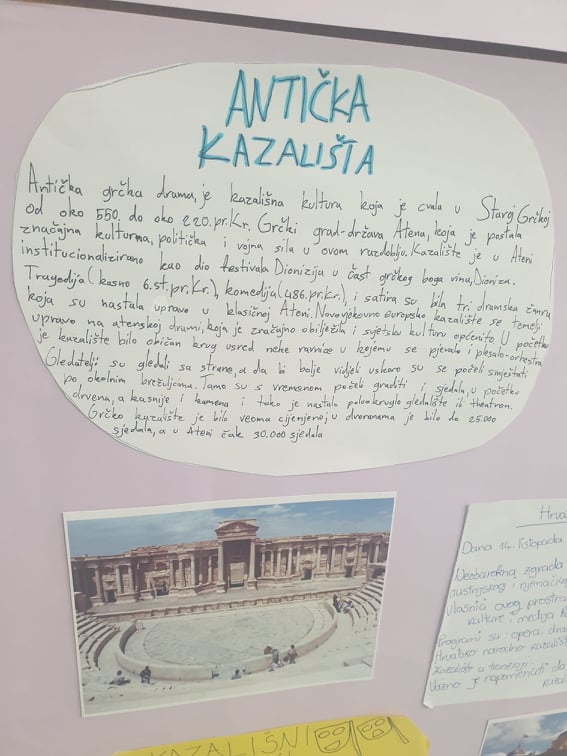 ANTIČKA
KAZALIŠTA
Antička grčka drama, je kazališna kultura koja je cvala u Staroj Grčkoj
od oko 550. do oko 220.pr.Kr. Grčki grad-država Atena, koja je postala
značajna kulturna, politička i vojna sila u ovom razdoblju. Kazalište je u Ateni
institucionalizirano kao dio festivala Dionizija u čast grčkog boga vina, Dioniza.
Tragedija (kasno 6.st.pr.Kr.), komedija (486.pr.Kr.), i satira su bila tri dramska žanra
koja su nastala upravo u klasičnoj Ateni. Novovjekovno europsko kazalište se temelji
upravo na atenskoj drami, koja je značajno obilježila i svjetsku kulturu općenito. U početku
je kazalište bilo običan krug usred neke ravnice u kojemu se pjevalo i plesalo-orchestra.
Gledatelji su gledali sa strane, a da bi bolje vidjeli uskoro su se počeli smještati
po okolnim brežuljcima. Tamo su s vremenom počeli graditi i sjedala, u početku
drvena, a kasnije i kamena i tako je nastalo polukruglo gledalište ili theatron.
Grčko kazalište je bilo veoma cijenjeno, u dvoranama je bilo do 25.000
sjedala, a u Ateni čak 30.000 sjedala
Dana 14. listopada
Neobarokna zgrada
austrijskog i njemačkog
Vlasnici ovog prostora
kulture i medija
Programi su: opera, dram
Hrvatsko narodno kazalište
kazalište u
Važno je napomenuti da
KAZALIŠNI